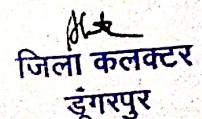 जिला कलक्टर
डूंगरपुर